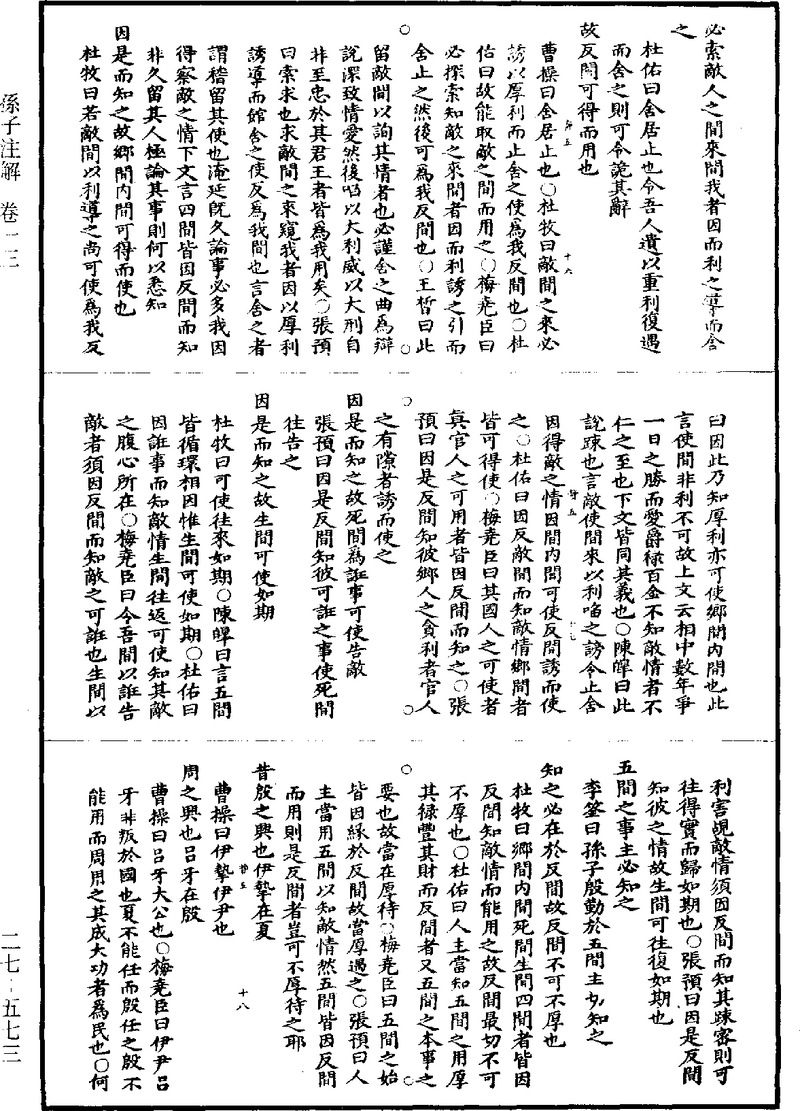 必索敵人之間來間我者因而利之導而舍
之
杜佑曰舍居止也令吾人遺以重利復遇
而舍之則可令詭其辭
故反間可得而用也
曹操曰舍居止也〇杜牧曰敵間之來必
誘以厚利而止舍之使為我反間也〇杜
佑曰故能取敵之間而用之〇梅堯臣曰
必探索知敵之來間者因而利誘之引而
舍止之然後可為我反間也〇王晳曰此
留敵間以詢其情者也必謹舍之曲為辯
說深致情愛然後啗以大利威以大刑自
非至忠於其君王者皆為我用矣〇張預
曰索求也求敵間之來窺我者因以厚利
誘導而館舍之使反為我間也言舍之者
謂稽留其使也淹延既久論事必多我因
得察敵之情下文言四間皆因反間而知
非久留其人極論其事則何以悉知
因是而知之故鄉間内間可得而使也
杜牧曰若敵間以利導之尚可使為我反
曰因此乃知厚利亦可使鄉間内間也此
言使間非利不可故上文云相守數年爭
一日之勝而愛爵禄百金不知敵情者不
仁之至也下文皆同其義也〇陳皥曰此
說疎也言敵使間來以利啗之誘令止舍
因得敵之情因間内間可使反間誘而使
之〇杜佑曰因反敵間而知敵情鄉間者
皆可得使〇梅堯臣曰其國人之可使者
其官人之可用者皆因反間而知之〇張
預曰因是反間知彼鄉人之貪利者官人
之有隙者誘而使之
因是而知之故死間為誑事可使告敵
張預曰因是反間知彼可誑之事使死間
往告之
因是而知之故生間可使如期
杜牧曰可使往來如期〇陳皥曰言五間
皆循環相因惟生間可使如期〇杜佑曰
因誑事而知敵情生間往返可使知其敵
之腹心所在〇梅堯臣曰令吾間以誑告
敵者須因反間而知敵之可誑也生間以
利害覘敵情須因反間而知其疎審則可
往得實而歸如期也〇張預曰因是反間
知彼之情故生間可往復如期也
五間之事主必知之
李筌曰孫子殷勤於五間主切知之
知之必在於反間故反間不可不厚也
杜牧曰鄉間内間死間生間四間者皆因
反間知敵情而能用之故反間最切不可
不厚也〇杜佑曰人主當知五間之用厚
其禄豐其財而反間者又五間之本事之
要也故當在厚待〇梅堯臣曰五間之始
皆因緣於反間故當厚遇之〇張預曰人
主當用五間以知敵情然五間皆因反間
而用則是反間者豈可不厚待之耶
昔殷之興也伊摯在夏
曹操曰伊摯伊尹也
周之興也吕牙在殷
曹操曰吕牙大公也〇梅堯臣曰伊尹吕
牙非叛於國也夏不能任而殷任之殷不
能用而周用之其成大功者為民也〇何
孫子注解 卷一三
二七·五七三
十六
十七
十八